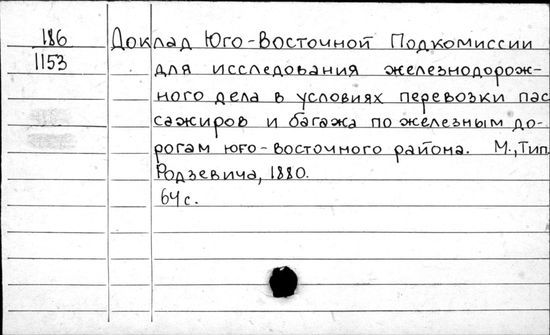 186
1153
Доклад Юго-Восточной Подкомиссии
для исследования железнодорож-
ного дела в условиях перевозки пас
сажиров и багажа по железным до-
рогам юго-восточного района. М., Тип.
Родзевича, 1880.
64 с.